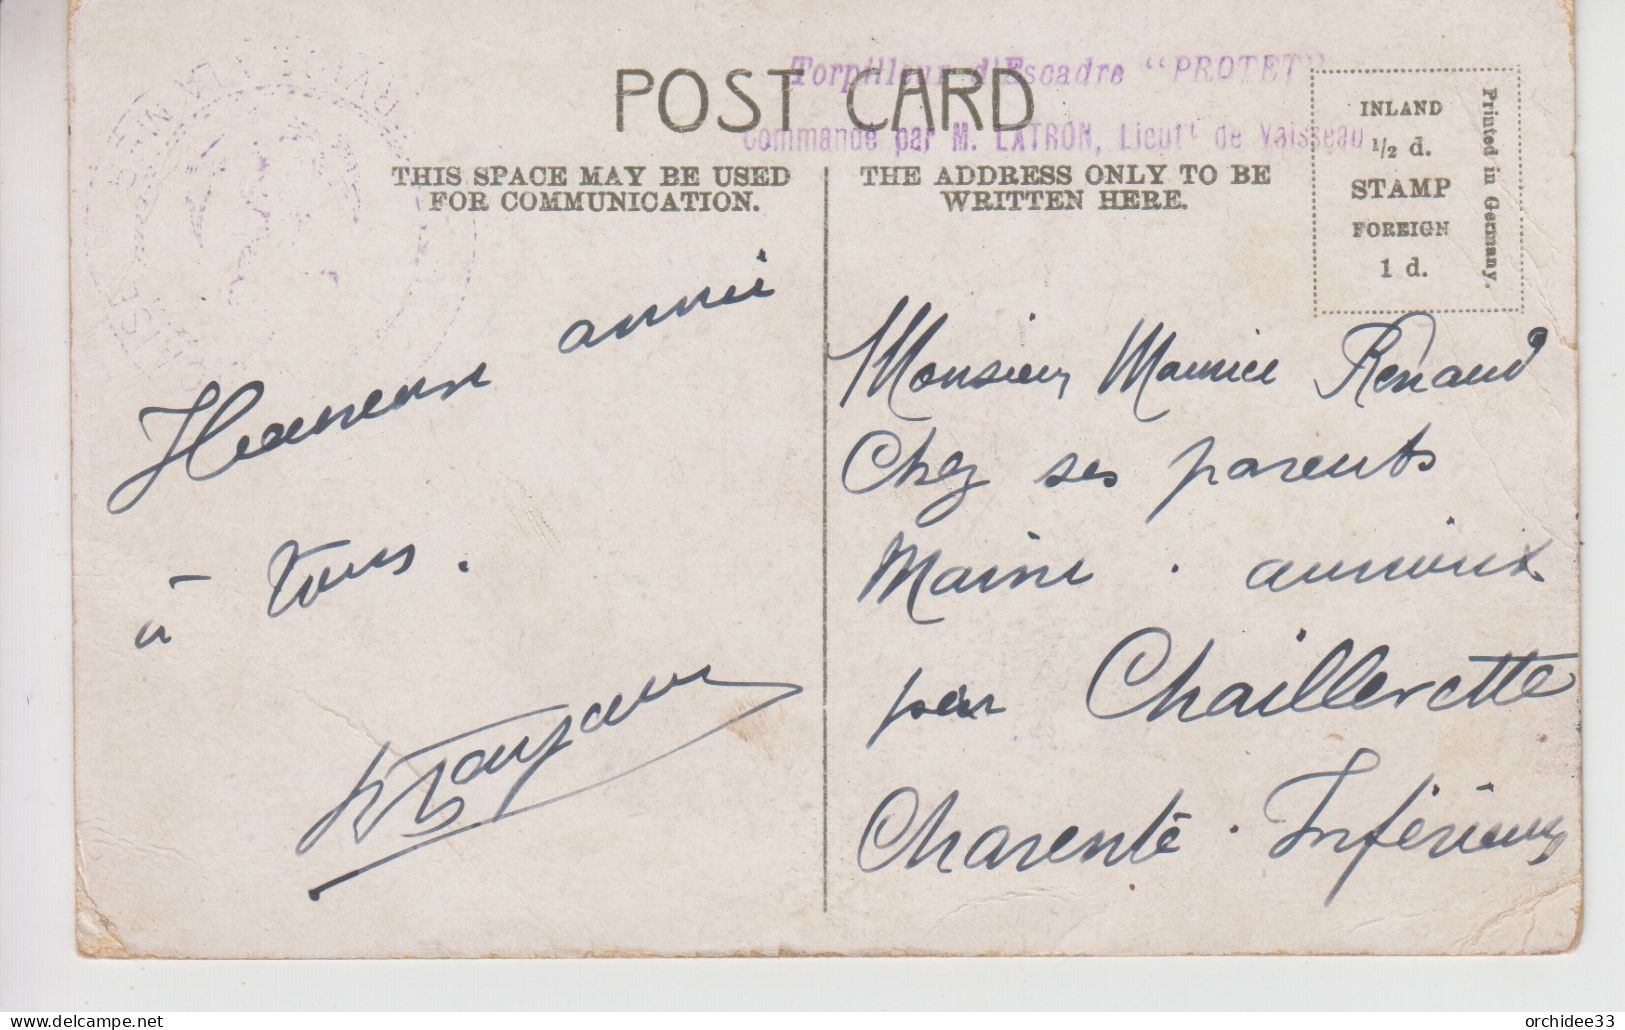 Torpilleur d'Escadre "PROTET"
POST CARD
Commandé par M. LATRON, Lieutt de Vaisseau
THIS SPACE MAY BE USED
FOR COMMUNICATION.
THE ADDRESS ONLY TO BE
WRITTEN HERE.
INLAND
1/2 d.
STAMP
FOREIGN
1 d.
Printed in Germany.
Heureuse année
à tous.
Monsieur Maurice Renaud
Chez ses parents
par Chaillevette
Charente-Inférieure
delcampe.net
orchidee33